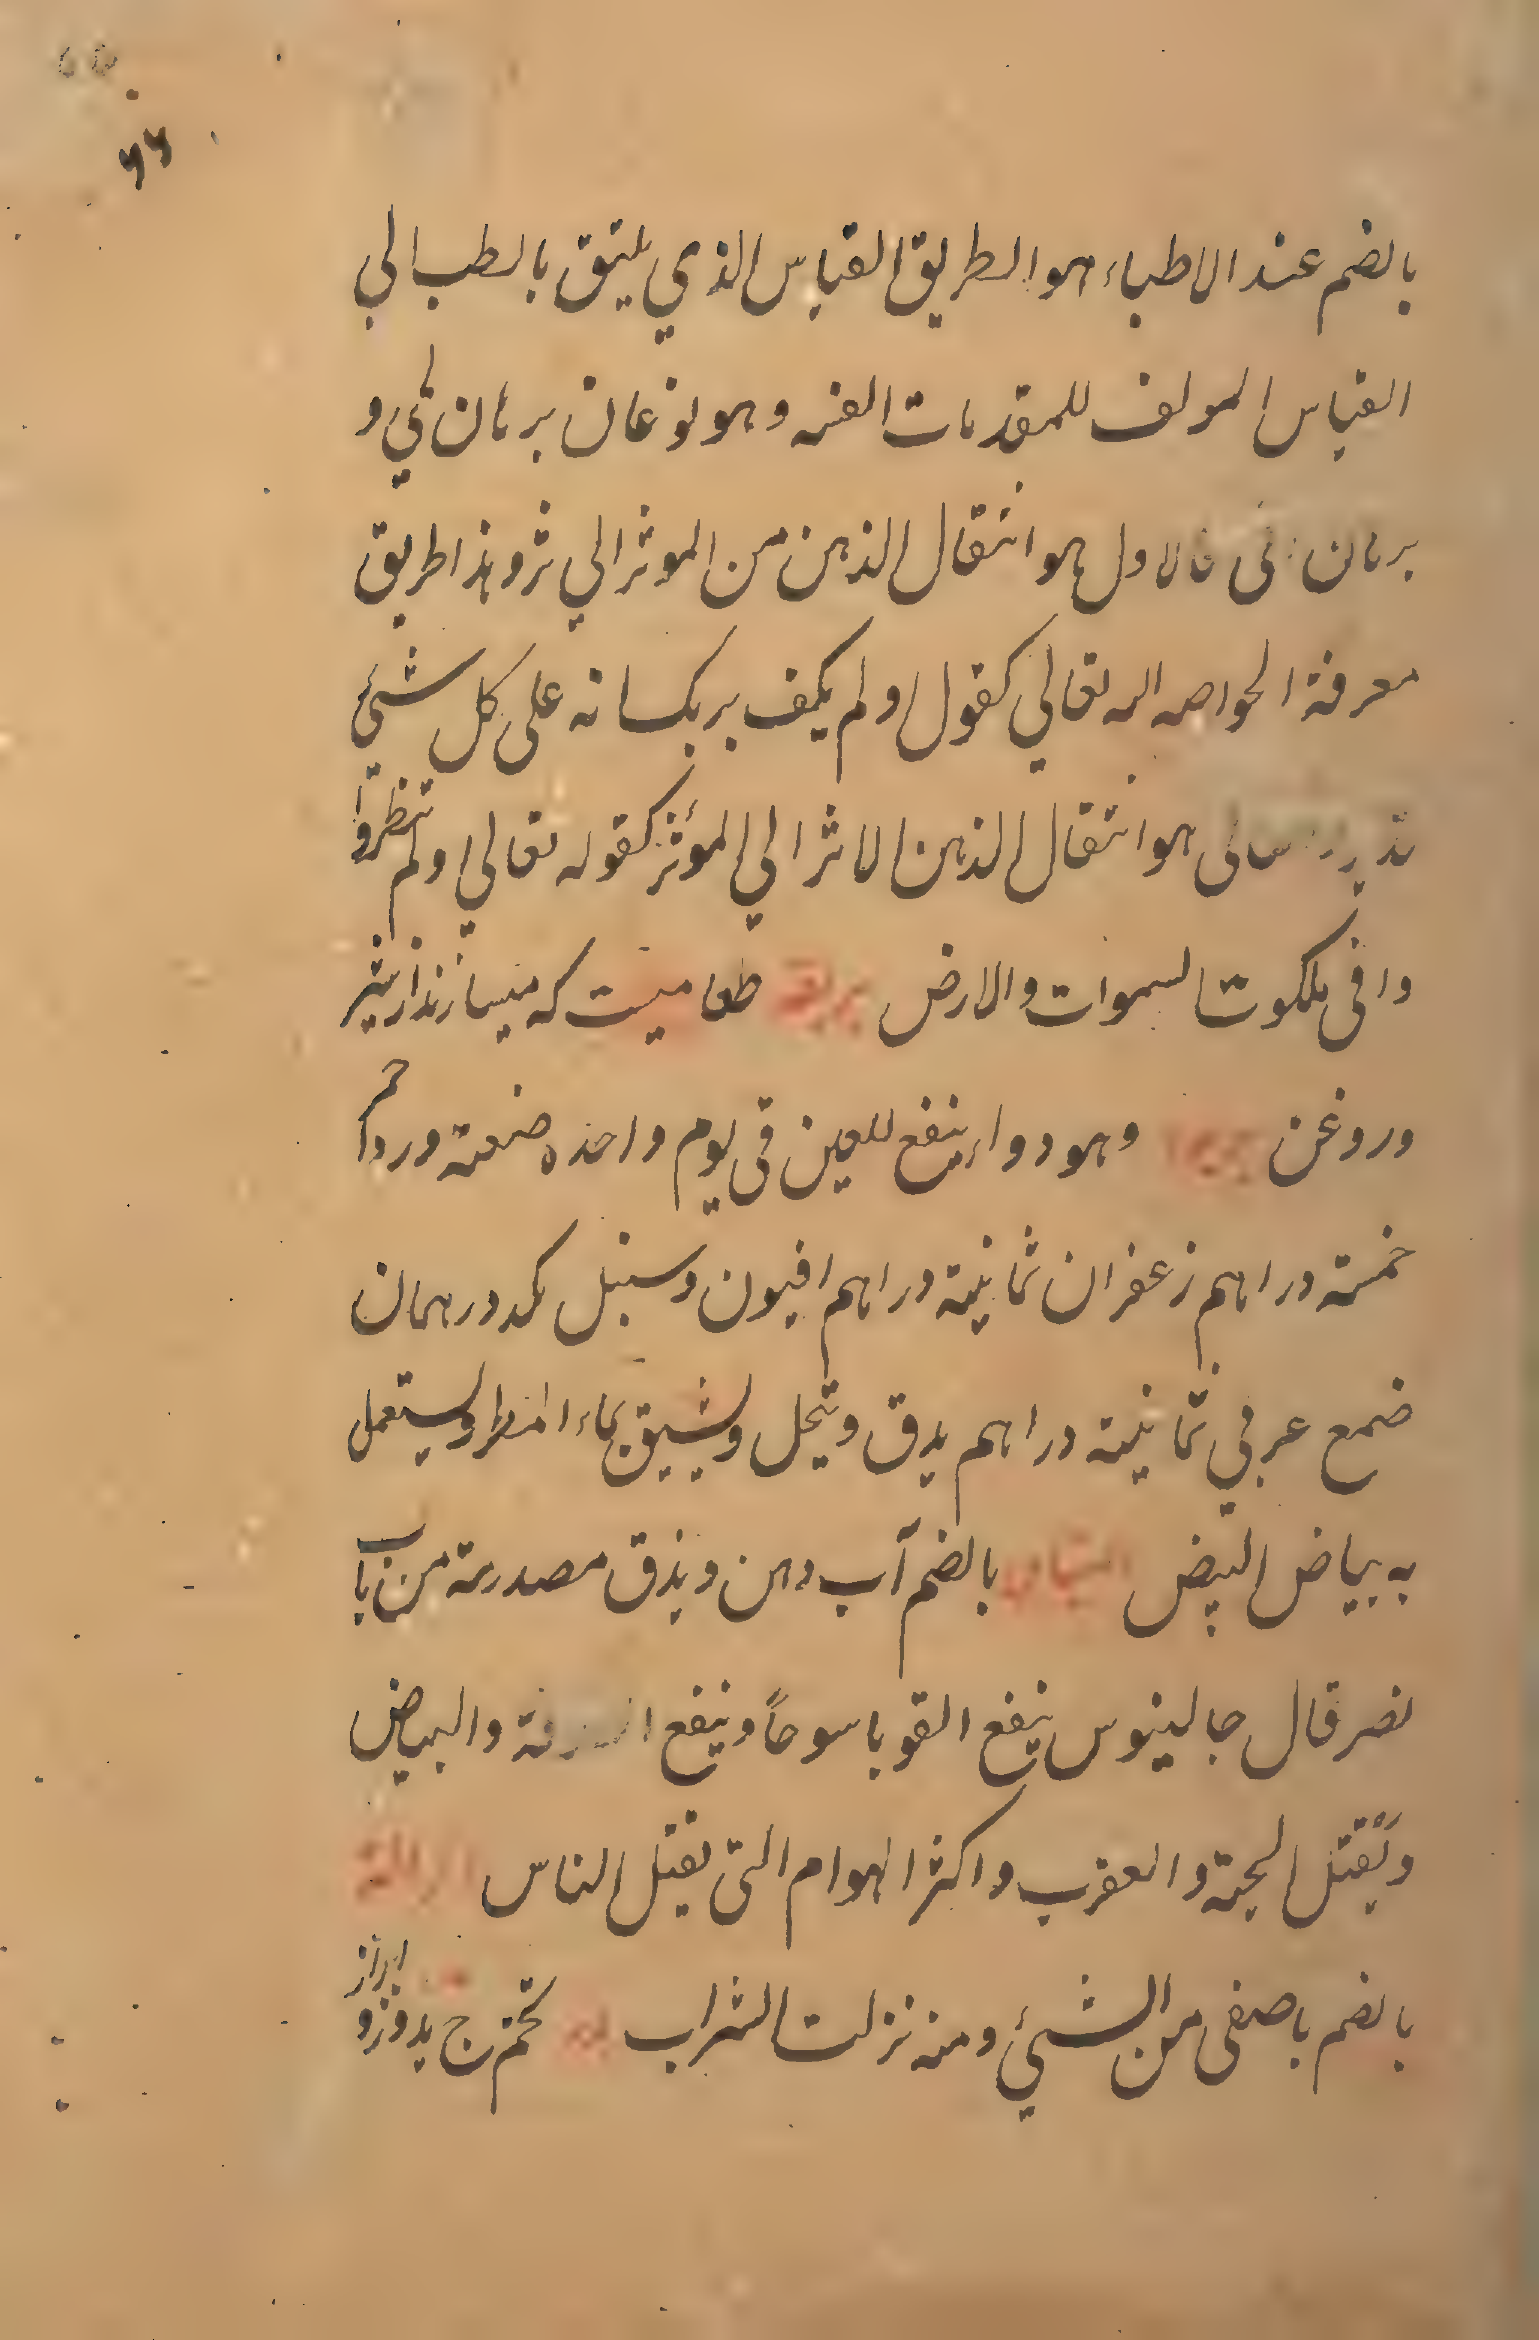 ٦٦
بالضم عند الاطباء هو الطريق القياس الذي يليق بالطب الي
القياس المولف للمقدمات الفنه وهو نوعان برهان لمي و
برهان اني فالاول هو انتقال الذهن من الموثر الي ثر وهذا طريق
معرفة الخواصه اله تعالي كقول اولم يكف بربك انه علی كل شئي
هو انتقال الذهن الاثر الي المؤثر كقوله تعالي اولم تنظروا
وا فی ملكوت السموات والارض طعامیست که میسازند از شیر
وروغن وهو دواء ينفع للعين فی يوم واحده صنعته ورد احمر
خمسة دراهم زعفران ثمانية دراهم افيون وسنبل كمد درهمان
ضمع عربي ثمانية دراهم يدق وينحل ويشيق بماء المطر ويستعمل
به بياض البيض البزاق بالضم آب دهن وبذق مصدرية من باب
نصر قال جالينوس ينفع القوبا سوحاً وينفع والبياض
ويقتل الحية والعقرب واكثر الهوام التی یقتل الناس
بالضم باصفی من الشئي ومنه نزلت الشراب تخم ج بدوزو ابراز